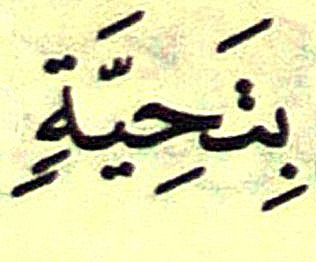 بِتَحِيَّةٍ